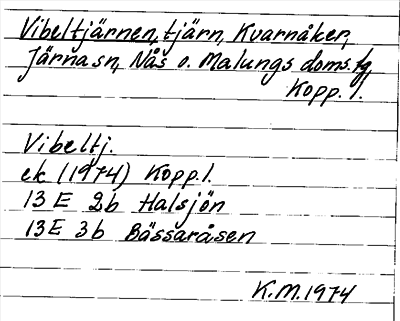 Vibeltjärnen, tjärn, Kvarnåker,
Järna sn, Nås o. Malungs doms.g,
Kopp. l.
Vibeltj.
ek (1974) Kopp. l.
13 E 2b Halsjön
13 E 3b Bässaråsen
K.M. 1974